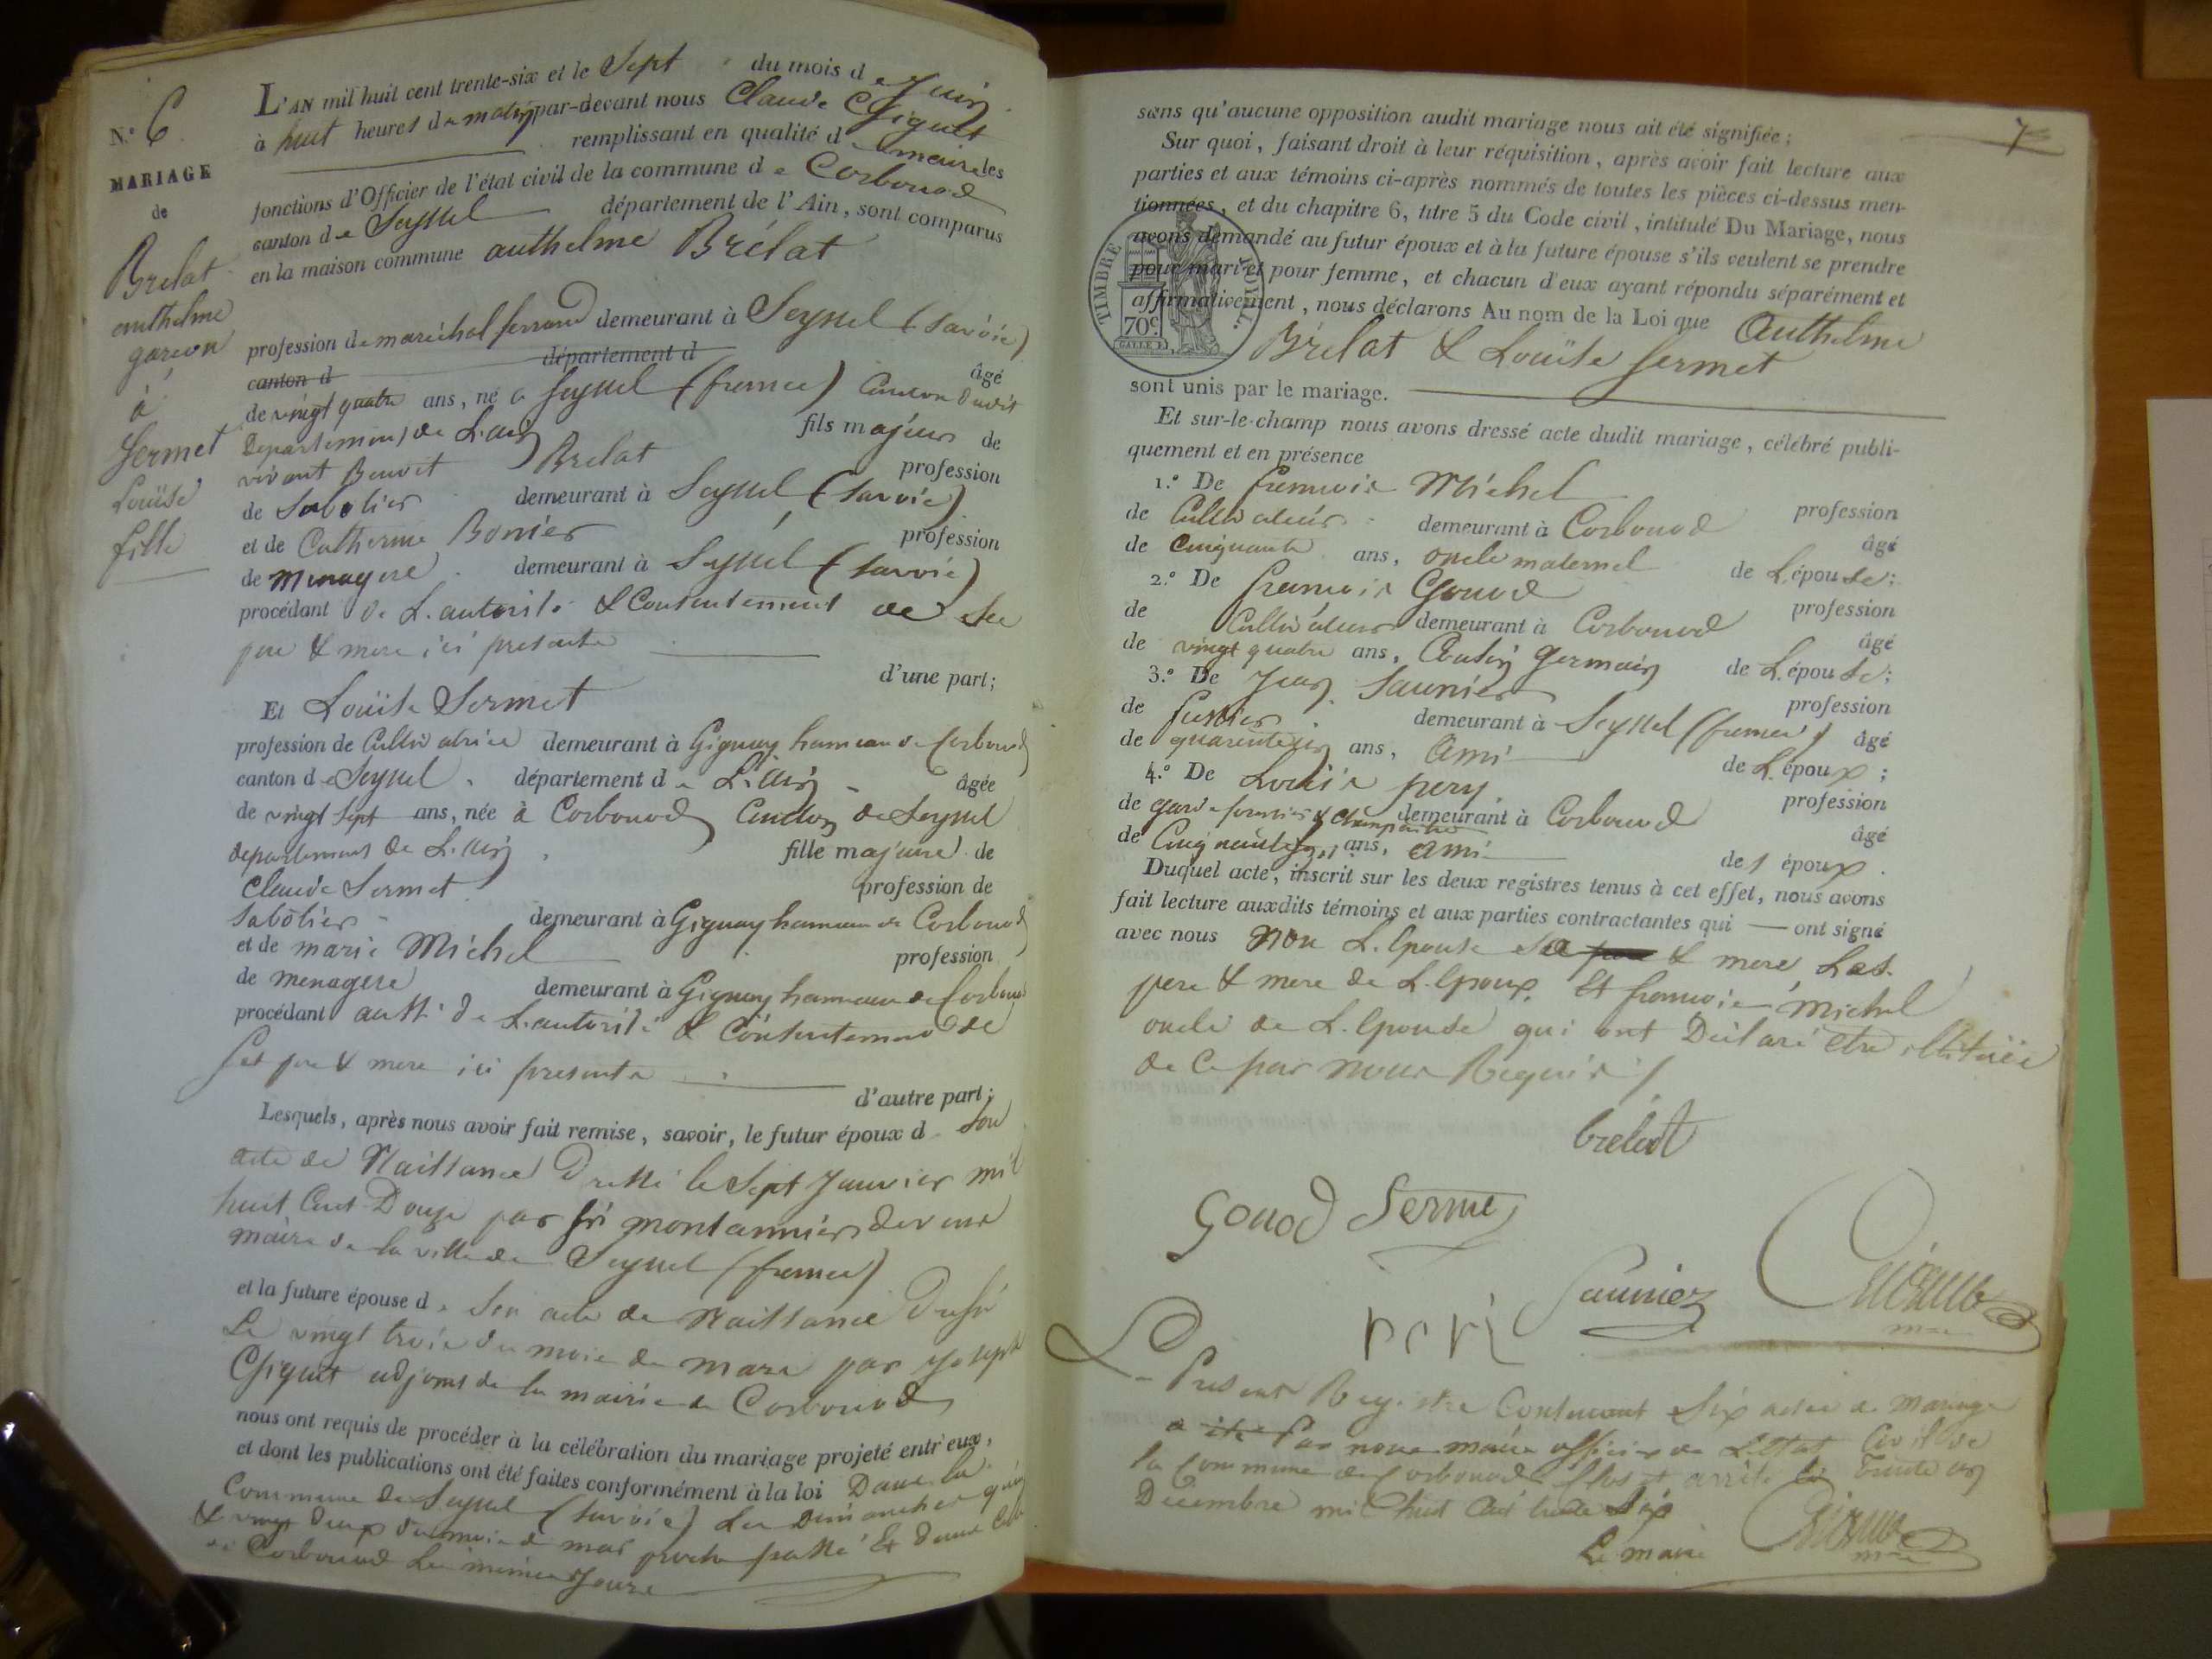 N.º 6
MARIAGE
de
Brelat
authelme
garcon
à
Sermet
Louïse
fille
L'AN mil huit cent trente-six et le Sept du mois de Juin
à huit heures du matin par-devant nous Claude Giguet
remplissant en qualité de maire les
fonctions d'Officier de l'état civil de la commune de Corbonod
canton de Seyssel département de l'Ain, sont comparus
en la maison commune authelme Brélat
profession de maréchal ferrand demeurant à Seyssel (savoie)
canton d département d âgé
de vingt quatre ans, né a Seyssel (france) Canton dudit
Departement de L.ain fils majeur de
vivant Benoit Brelat profession
de Sabotier demeurant à Seyssel (savoie)
et de Catherine Bonier profession
de menagere demeurant à Seyssel (savoie)
procédant de L.autorité & Consentement de ses
pere & mere ici presents
d'une part;
Et Louïse Sermet
profession de Cultivatrice demeurant à Gignay hameau de Corbonod
canton de Seyssel département de L.ain âgée
de vingt sept ans, née à Corbonod Canton de Seyssel
departement de L.ain fille majeure de
Claude Sermet profession de
Sabôtier demeurant à Gignay hameau de Corbonod
et de marie Michel profession
de menagere demeurant à Gignay hameau de Corbonod
procédant aussi de L.autorité & Consentement de
ses pere & mere ici presents
d'autre part;
Lesquels, après nous avoir fait remise, savoir, le futur époux d son
acte de Naissance Dressé le Sept Janvier mil
huit Cent Douze par Sr montannier
maire de la ville de Seyssel (france)
et la future épouse de son acte de Naissance Dressé
Le vingt trois du mois de mars par Joseph
Giguet adjoint de la mairie de Corbonod
nous ont requis de procéder à la célébration du mariage projeté entr'eux,
et dont les publications ont été faites conformément à la loi Dans la
Commune de Seyssel (savoie) Les Dimanches quinze
& vingt Deux du mois de mai proche passé Et dans Celle
de Corbonod Les mêmes Jours
7
sans qu'aucune opposition audit mariage nous ait été signifiée;
Sur quoi, faisant droit à leur réquisition, après avoir fait lecture aux
parties et aux témoins ci-après nommés de toutes les pièces ci-dessus men-
tionnées, et du chapitre 6, titre 5 du Code civil, intitulé Du Mariage, nous
avons demandé au futur époux et à la future épouse s'ils veulent se prendre
pour mari et pour femme, et chacun d'eux ayant répondu séparément et
affirmativement, nous déclarons Au nom de la Loi que Authelme
Brélat & Louïse Sermet
TIMBRE ROYAL.
70c.
sont unis par le mariage.
Et sur-le-champ nous avons dressé acte dudit mariage, célébré publi-
quement et en présence
1.º De francois Michel profession
de Cultivateur demeurant à Corbonod âgé
de Cinquante ans, oncle maternel de L.épouse;
2.º De francois Gonod profession
de Cultivateur demeurant à Corbonod âgé
de vingt quatre ans, Cousin Germain de L.épouse;
3.º De Jean Saunier profession
de demeurant à Seyssel (france) âgé
de ans, Ami de L.époux;
4.º De Louis pery profession
de garde forestier & champetre demeurant à Corbonod âgé
de ans, ami de l époux.
Duquel acte, inscrit sur les deux registres tenus à cet effet, nous avons
fait lecture auxdits témoins et aux parties contractantes qui ont signé
avec nous Non L.Epouse sa & mere, Les
pere & mere de L.Epoux, Et francois Michel
oncle de L.Epouse qui ont Déclaré etre illitérés
de Ce par nous Requis
brelat
Gonod Sermet
Saunier
peri
Le Present Registre Contenant Six actes de Mariage
a été Par nous maire officier de L.Etat Civil de
la Commune de Corbonod Clos et arrêté le trente un
Décembre mil huit Cent trente Six
Le maire